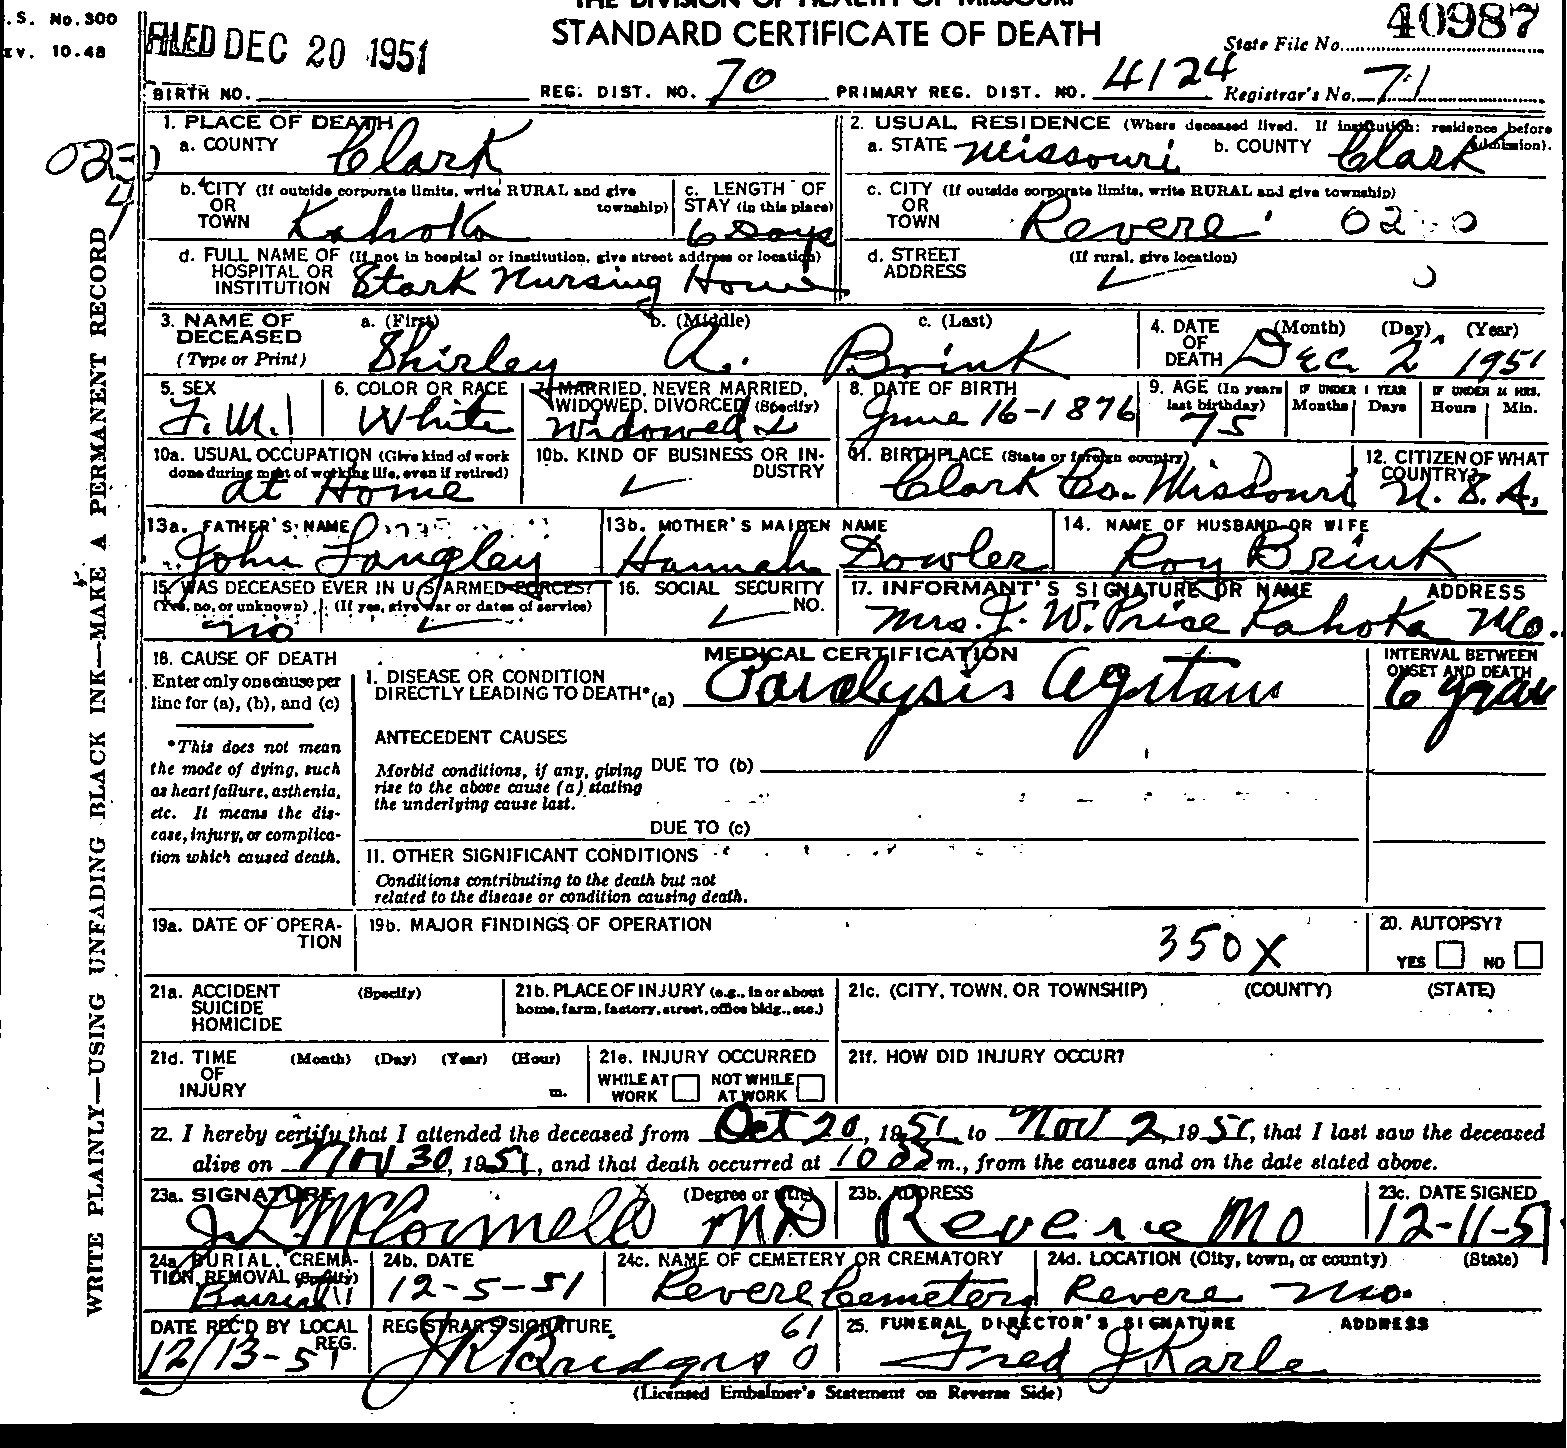 THE DIVISION OF HEALTH OF MISSOURI
.S. No. 300
EV. 10.48
FILED DEC 20 1951
STANDARD CERTIFICATE OF DEATH
State File No. 40987
BIRTH NO.
REG. DIST. NO. 70
PRIMARY REG. DIST. NO. 4124
Registrar's No. 71
WRITE PLAINLY—USING UNFADING BLACK INK—MAKE A PERMANENT RECORD
1. PLACE OF DEATH
a. COUNTY Clark
2. USUAL RESIDENCE (Where deceased lived. If institution: residence before admission).
a. STATE Missouri b. COUNTY Clark
b. CITY (If outside corporate limits, write RURAL and give township) OR TOWN Kahoka
c. LENGTH OF STAY (in this place) 6 Days
c. CITY (If outside corporate limits, write RURAL and give township) OR TOWN Revere
d. FULL NAME OF (If not in hospital or institution, give street address or location) HOSPITAL OR INSTITUTION Stark Nursing Home
d. STREET ADDRESS (If rural, give location)
3. NAME OF DECEASED (Type or Print)
a. (First) Shirley b. (Middle) A. c. (Last) Brink
4. DATE OF DEATH (Month) (Day) (Year) Dec 2 1951
5. SEX F.M.
6. COLOR OR RACE White
7. MARRIED, NEVER MARRIED, WIDOWED, DIVORCED (Specify) Widowed 2
8. DATE OF BIRTH June 16-1876
9. AGE (In years last birthday) 75
IF UNDER 1 YEAR Months Days
IF UNDER 24 HRS. Hours Min.
10a. USUAL OCCUPATION (Give kind of work done during most of working life, even if retired) at Home
10b. KIND OF BUSINESS OR INDUSTRY
11. BIRTHPLACE (State or foreign country) Clark Co. Missouri
12. CITIZEN OF WHAT COUNTRY? U.S.A.
13a. FATHER'S NAME John Langley
13b. MOTHER'S MAIDEN NAME Hannah Dowler
14. NAME OF HUSBAND OR WIFE Roy Brink
15. WAS DECEASED EVER IN U.S. ARMED FORCES? (Yes, no, or unknown) (If yes, give war or dates of service) no
16. SOCIAL SECURITY NO.
17. INFORMANT'S SIGNATURE OR NAME ADDRESS
Mrs. J. W. Price Kahoka Mo.
18. CAUSE OF DEATH
Enter only one cause per line for (a), (b), and (c)
*This does not mean the mode of dying, such as heart failure, asthenia, etc. It means the disease, injury, or complication which caused death.
MEDICAL CERTIFICATION
I. DISEASE OR CONDITION DIRECTLY LEADING TO DEATH*(a) Paralysis Agitans
INTERVAL BETWEEN ONSET AND DEATH 6 years
ANTECEDENT CAUSES
Morbid conditions, if any, giving rise to the above cause (a) stating the underlying cause last.
DUE TO (b)
DUE TO (c)
II. OTHER SIGNIFICANT CONDITIONS
Conditions contributing to the death but not related to the disease or condition causing death.
19a. DATE OF OPERATION
19b. MAJOR FINDINGS OF OPERATION
350X
20. AUTOPSY?
YES NO
21a. ACCIDENT SUICIDE HOMICIDE (Specify)
21b. PLACE OF INJURY (e.g., in or about home, farm, factory, street, office bldg., etc.)
21c. (CITY, TOWN, OR TOWNSHIP) (COUNTY) (STATE)
21d. TIME OF INJURY (Month) (Day) (Year) (Hour) m.
21e. INJURY OCCURRED
WHILE AT WORK NOT WHILE AT WORK
21f. HOW DID INJURY OCCUR?
22. I hereby certify that I attended the deceased from Oct 20, 1951, to Nov 2, 1951, that I last saw the deceased
alive on Nov 30, 1951, and that death occurred at m., from the causes and on the date stated above.
23a. SIGNATURE (Degree or title) J L McConnell MD
23b. ADDRESS Revere Mo
23c. DATE SIGNED 12-11-51
24a. BURIAL, CREMATION, REMOVAL (Specify) Burial
24b. DATE 12-5-51
24c. NAME OF CEMETERY OR CREMATORY Revere Cemetery
24d. LOCATION (City, town, or county) (State) Revere Mo.
DATE REC'D BY LOCAL REG. 12/13-51
REGISTRAR'S SIGNATURE J K Bridges
61
0
25. FUNERAL DIRECTOR'S SIGNATURE ADDRESS
Fred J Karle
(Licensed Embalmer's Statement on Reverse Side)